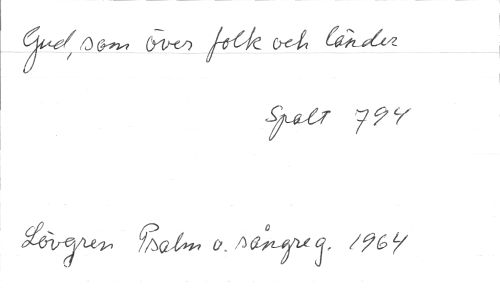 Gud, som över folk och länder
Spalt 794
Lövgren Psalm o. sångreg. 1964